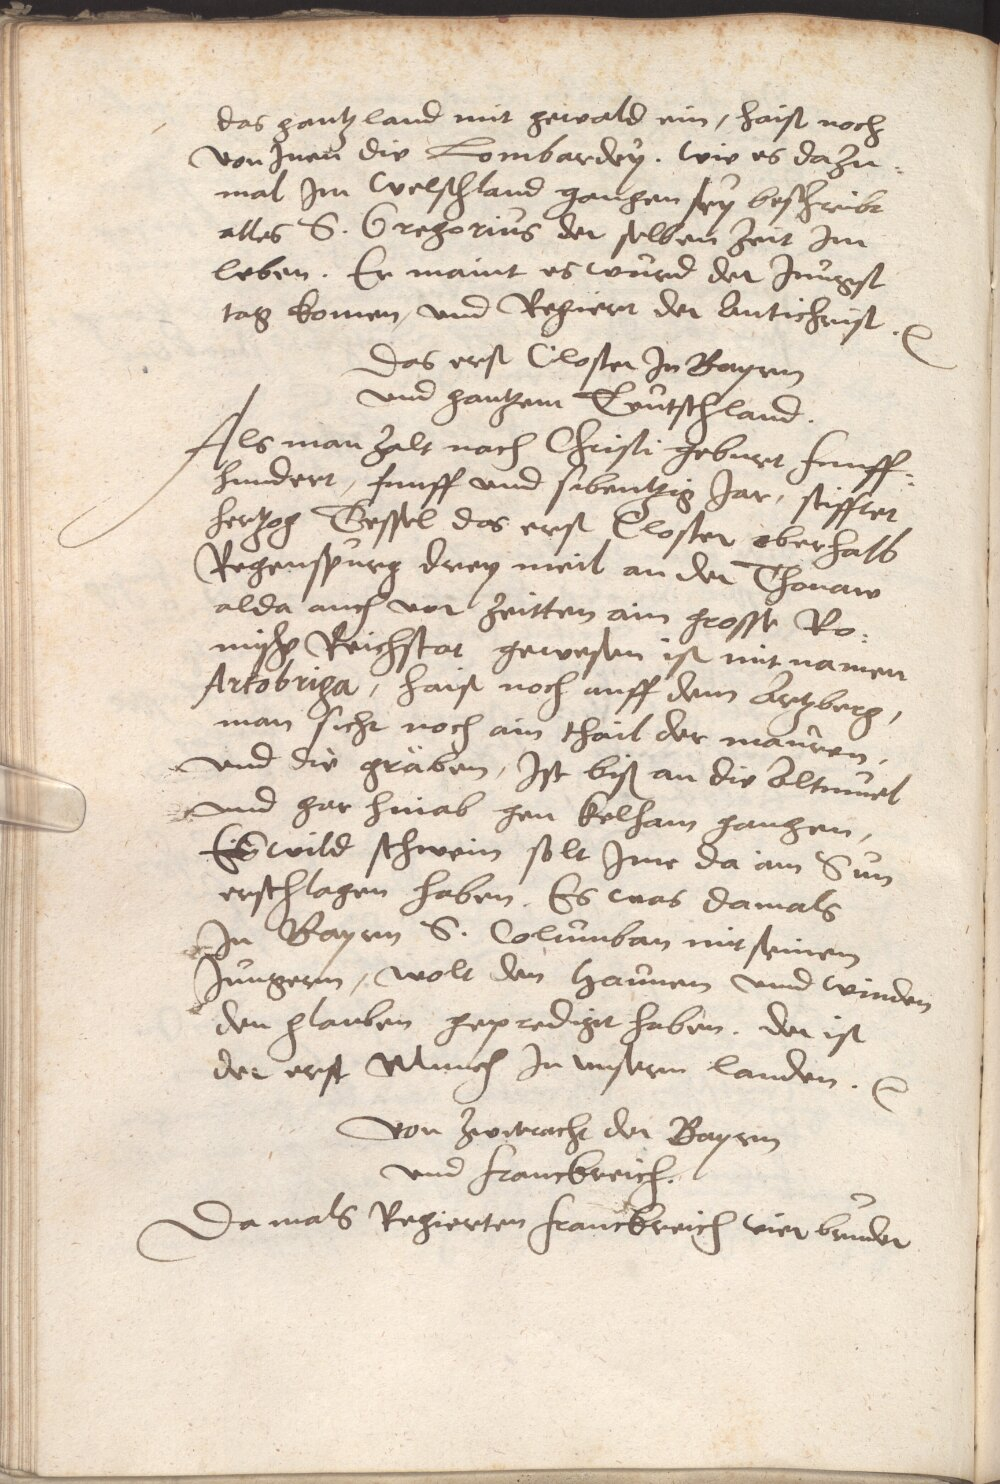 das gantz land mit gewald ein, haist noch
von Inen die Lombardey. wie es dazu-
mal Im welschland gangen sey beschreibt
alles S. Gregorius der selben zeit Im
leben. Er maint es wurd der Jungst
tag komen, und Regiert der Antichrist.
Das erst Closter In Bayrn
und gantzem Teutschland.
Als man zalt nach Christi geburt funff-
hundert, funff und sibentzig Jar, stifftet
hertzog Tessel das erst Closter oberhalb
Regenspurg drey meil an der Thonaw
alda auch vor zeitten ain grosse Ro-
misch Reichstat gewesen ist mit namen
Artobriga, haist noch auff dem Artzberg,
man sicht noch ain thail der mauren,
und die gräben, Ist biß an die Altmuel
und gar hinab gen Kelham gangen,
Ein wild schwein solt Ime da ain Sun
erschlagen haben. Es was damals
In Bayrn S. Columban mit seinem
Jungern, wolt den Haunen und Winden
den glauben gepredigt haben. der ist
der erst Munch In unserm landen.
Von zwitracht der Bayrn
und Franckreich.
Damals Regierten Franckreich vier bruder